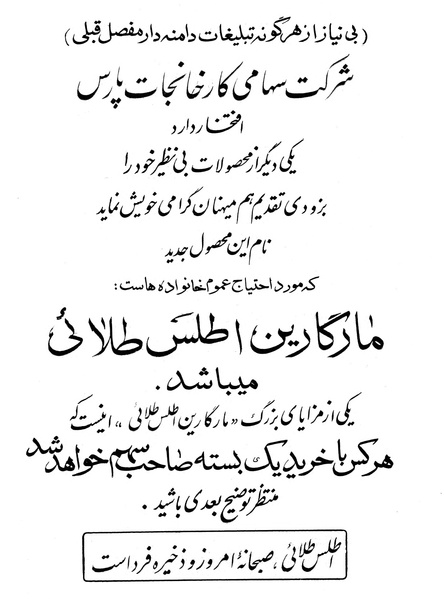 (بی نیاز از هرگونه تبلیغات دامنه دار مفصل قبلی)
شرکت سهامی کارخانجات پارس
افتخار دارد
یکی دیگر از محصولات بی نظیر خود را
بزودی تقدیم هم میهنان گرامی خویش نماید
نام این محصول جدید
که مورد احتیاج عموم خانواده هاست:
مارگارین اطلس طلائی
میباشد.
یکی از مزایای بزرگ «مارگارین اطلس طلائی»، اینست که
هرکس با خرید یک بسته صاحب سهم خواهد شد
منتظر توضیح بعدی باشید.
اطلس طلائی، صبحانهٔ امروز و ذخیره فرداست